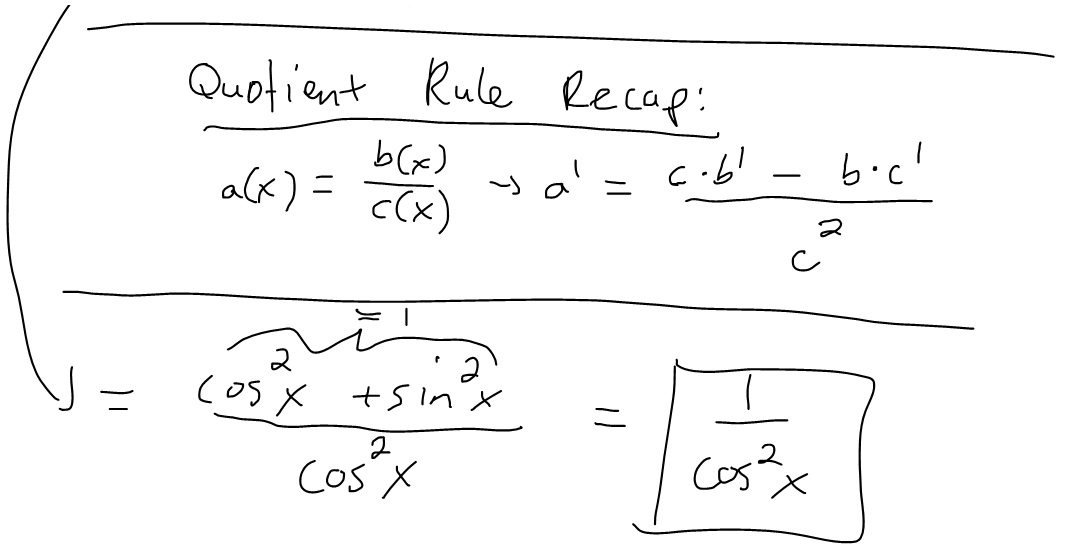 Quotient Rule Recap:
a(x) = b(x)/c(x) → a' = (c·b' − b·c')/c²
= 1
= (cos²x + sin²x)/cos²x = 1/cos²x